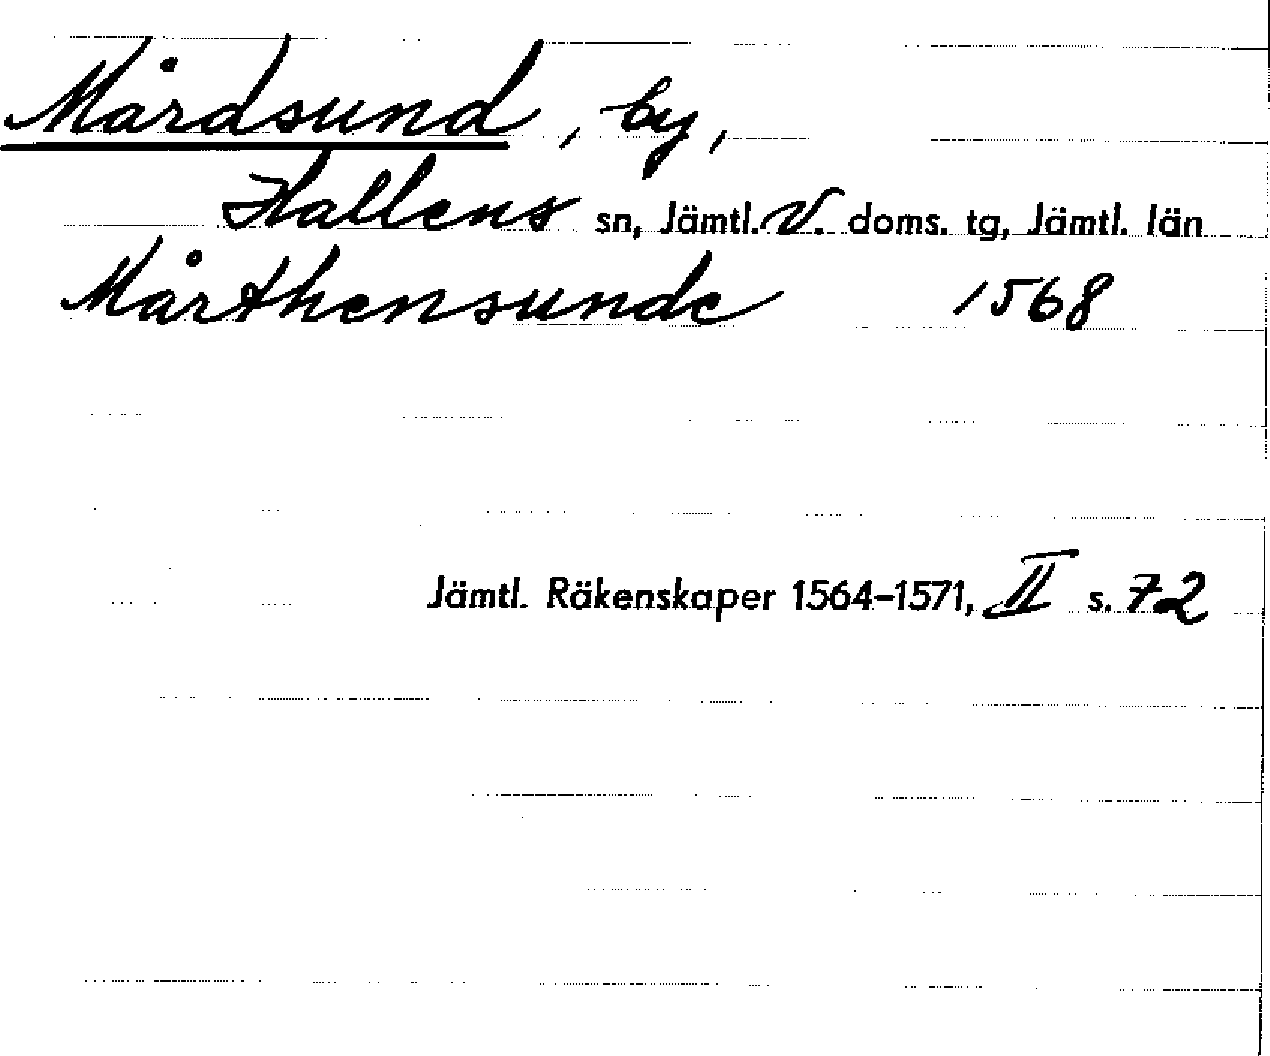 Mårdsund, by,
Hallens sn, Jämtl. V. doms. tg, Jämtl. län
Mårthensunde 1568
Jämtl. Räkenskaper 1564-1571, II s. 72